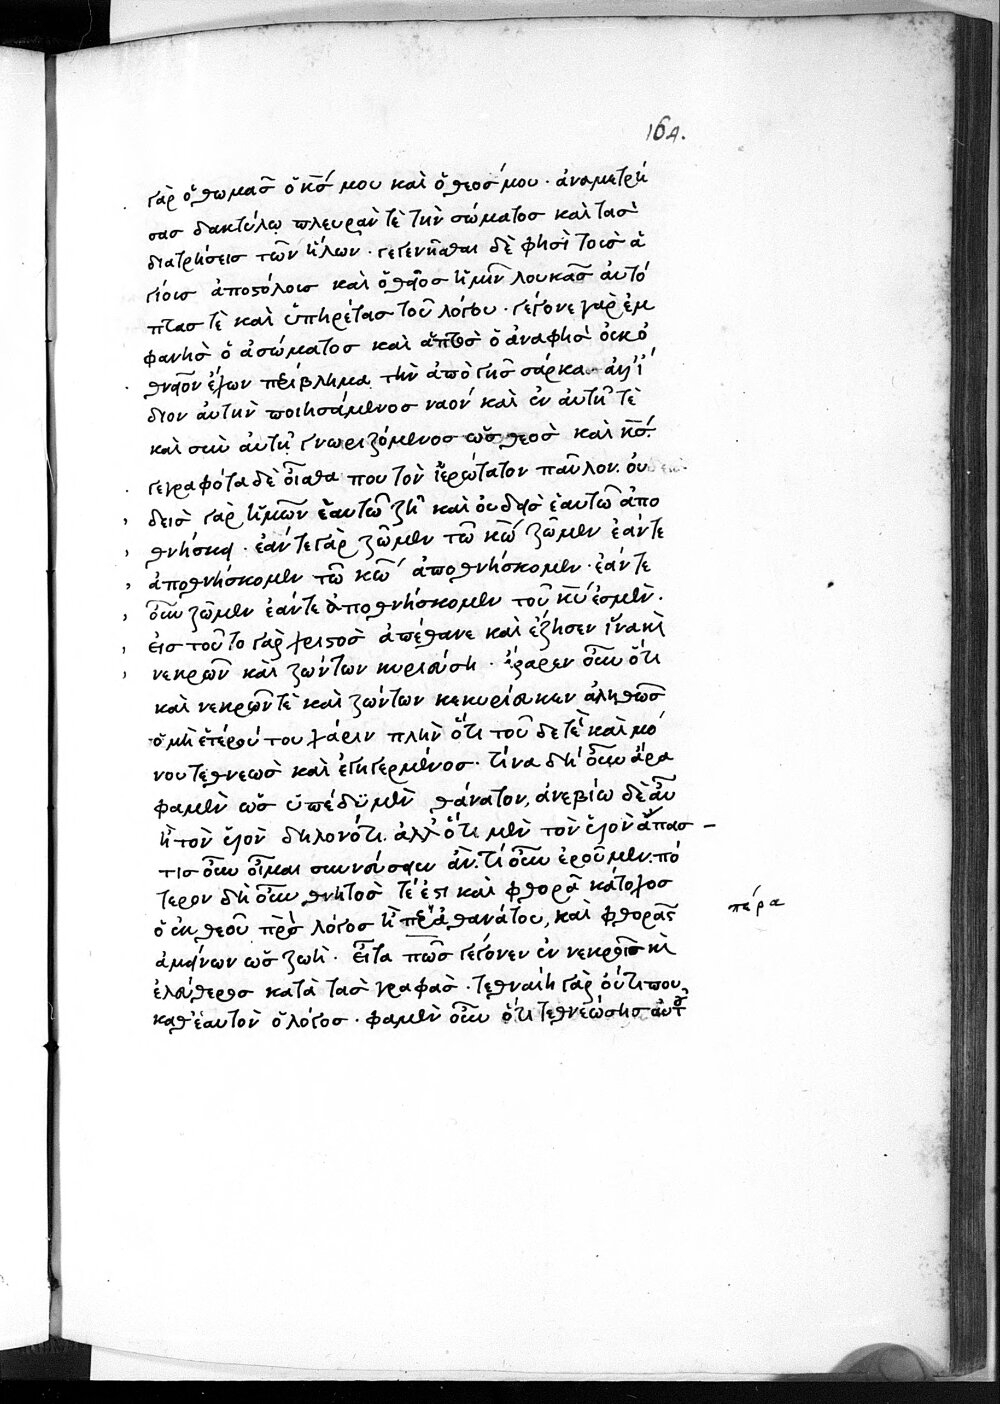 164.
γὰρ ὁ θωμᾶσ ὁ κ̅σ̅ μου καὶ ὁ θεόσ μου · ἀναμετρή
σασ δακτύλῳ πλευρὰν τὲ τὴν σώματοσ καὶ τὰσ
διατρήσεισ τῶν ἥλων · γεγενῆσθαι δὲ φησὶ τοῖσ ἁ
γίοισ ἀποστόλοισ καὶ ὁ θεῖοσ ἡμῖν λουκᾶσ αὐτό
πτασ τὲ καὶ ὑπηρέτασ τοῦ λόγου · γέγονε γὰρ ἐμ
φανὴσ ὁ ἀσώματοσ καὶ ἁπτὸσ ὁ ἀναφὴσ
ἔχων περίβλημα τὴν ἀπὸ γῆσ σάρκα
διον αὐτὴν ποιησάμενοσ ναόν καὶ ἐν αὐτῇ τὲ
καὶ σὺν αὐτῇ γνωριζόμενοσ ὡσ θεὸσ καὶ κ̅σ̅.
γεγραφότα δὲ οἶσθα που τὸν ἱερώτατον παῦλον. οὐ
δεισ γὰρ ἡμῶν ἑαυτῶ ζῆ καὶ οὐδεὶσ ἑαυτῶ ἀπο
θνήσκει · ἐάν τε γὰρ ζῶμεν τῶ κ̅ω̅ ζῶμεν ἐάν τε
ἀποθνήσκομεν τῶ κ̅ω̅ ἀποθνήσκομεν · ἐάν τε
οὖν ζῶμεν ἐάν τε ἀποθνήσκομεν τοῦ κ̅υ̅ ἐσμέν ·
εἰσ τοῦτο γὰρ χριστὸσ ἀπέθανε καὶ ἔζησεν ἵνα κὶ
νεκρῶν καὶ ζώντων κυριεύση · ἆρ' οὖν ὅτι
καὶ νεκρῶν τὲ καὶ ζώντων κεκυρίευκεν ἀληθῶσ
οὐ μὴ ἑτέρου του χάριν πλὴν ὅτι τοῦ δε τὲ καὶ μό
νου τεθνεῶσ καὶ ἐγηγερμένοσ · τίνα δὴ οὖν ἄρα
φαμὲν ὡσ ὑπέδυ μὲν θάνατον, ἀνεβίω δὲ αὖ
ἢ τὸν υἱὸν δηλονότι. ἀλλ' ὅτι μὲν τὸν υἱὸν ἅπασ –
τισ οὖν οἶμαι συνοίσειεν ἄν. τί οὖν ἐροῦμεν. πό
τερον δὴ οὖν θνητόσ τέ ἐστι καὶ φθορᾶ κάτοχοσ
ὁ ἐκ θεοῦ π̅ρ̅σ̅ λόγοσ ἢ πέρα θανάτου, καὶ φθορᾶσ
πέρα
ἀμείνων ὡσ ζωή · εἶτα πῶσ γέγονεν ἐν νεκροῖσ κὶ
ἐλεύθεροσ κατὰ τὰσ γραφάσ · τεθναίη γὰρ οὔτι που
καθ' ἑαυτὸν ὁ λόγοσ · φαμὲν οὖν ὅτι τεθνεώσησ αὐτ